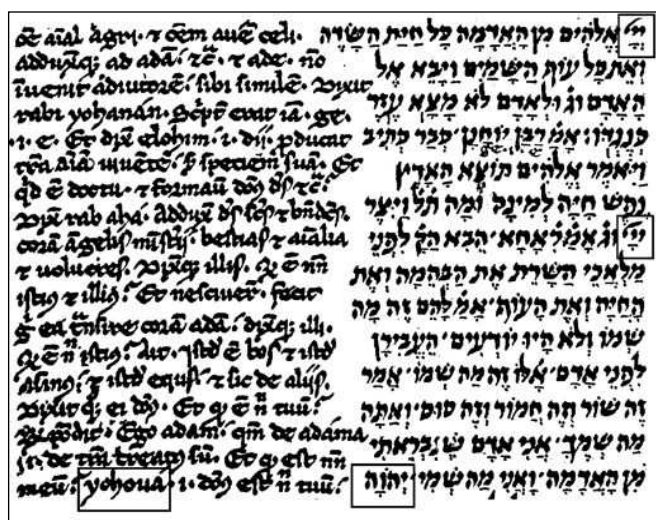 aĩal ãgri. ⁊ oẽm auẽ celi.
adduxitq; ad adã. ⁊c̃. ⁊ ade. nõ
ĩuenit adiutorẽ. sibi similẽ. Dixit
rabi yohanan. Sc̃pt erat iã. ge.
.i. e. Et dix̃ elohim .i. dij. p̱ducat
tr̃a aĩa uiuẽte. speciem suã. Et
qd ẽ ⁊ formauit dñs ds̃ ⁊c̃.
Dix̃ rab aha. Adduxit ds̃ sc̃s ⁊ bñdc̃s.
corã ãgelis bestias ⁊ aĩalia
⁊ uolucres. Dixitq; illis. Q ẽ nñ
istius ⁊ illius. Et nesciuerunt. fecit
g̃ ea trãsire corã adã. dixitq; illi.
Q ẽ nñ istius. Ait. Istd ẽ bos ⁊ istd
asinus. ⁊ istd equus ⁊ sic de alijs.
Dixit q; ei dñs. Et q ẽ nñ tuũ.
Respõdit. Ego adam. qm̃ de adama
.i. de creatus sũ. Et q est nñ
meũ. yohoua .i. dñs est nñ tuũ.
ייי אלהים מן האדמה כל חית השדה
ואת כל עוף השמים ויבא אל
האדם וג' ולאדם לא מצא עזר
כנגדו: אמ' רבן יוחנן· כבר כתיב
ויאמר אלהים תוצא הארץ
נפש חיה למינה ומה תל' ויצר
ייי וג' אמ' ר' אחא· הביא הק' לפני
מלאכי השרת את הבהמה ואת
החיה ואת העוף· אמ' להם זה מה
שמו ולא היו יודעים· העבירן
לפני אדם· אמ' לו זה מה שמו· אמר
זה שור וזה חמור וזה סוס· ואתה
מה שמך· אני אדם שנבראתי
מן האדמה· ואני מה שמי· יְהֹוָה